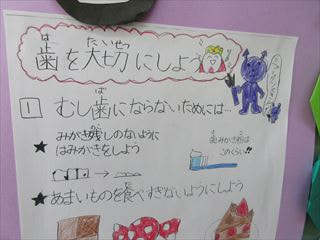 は たいせつ
歯を大切にしよう
ば
1 むし歯にならないためには…
みがき残しのないように
★ はみがきをしよう
歯みがき粉は
このくらい!!
★ あまいものを食べすぎないようにしよう